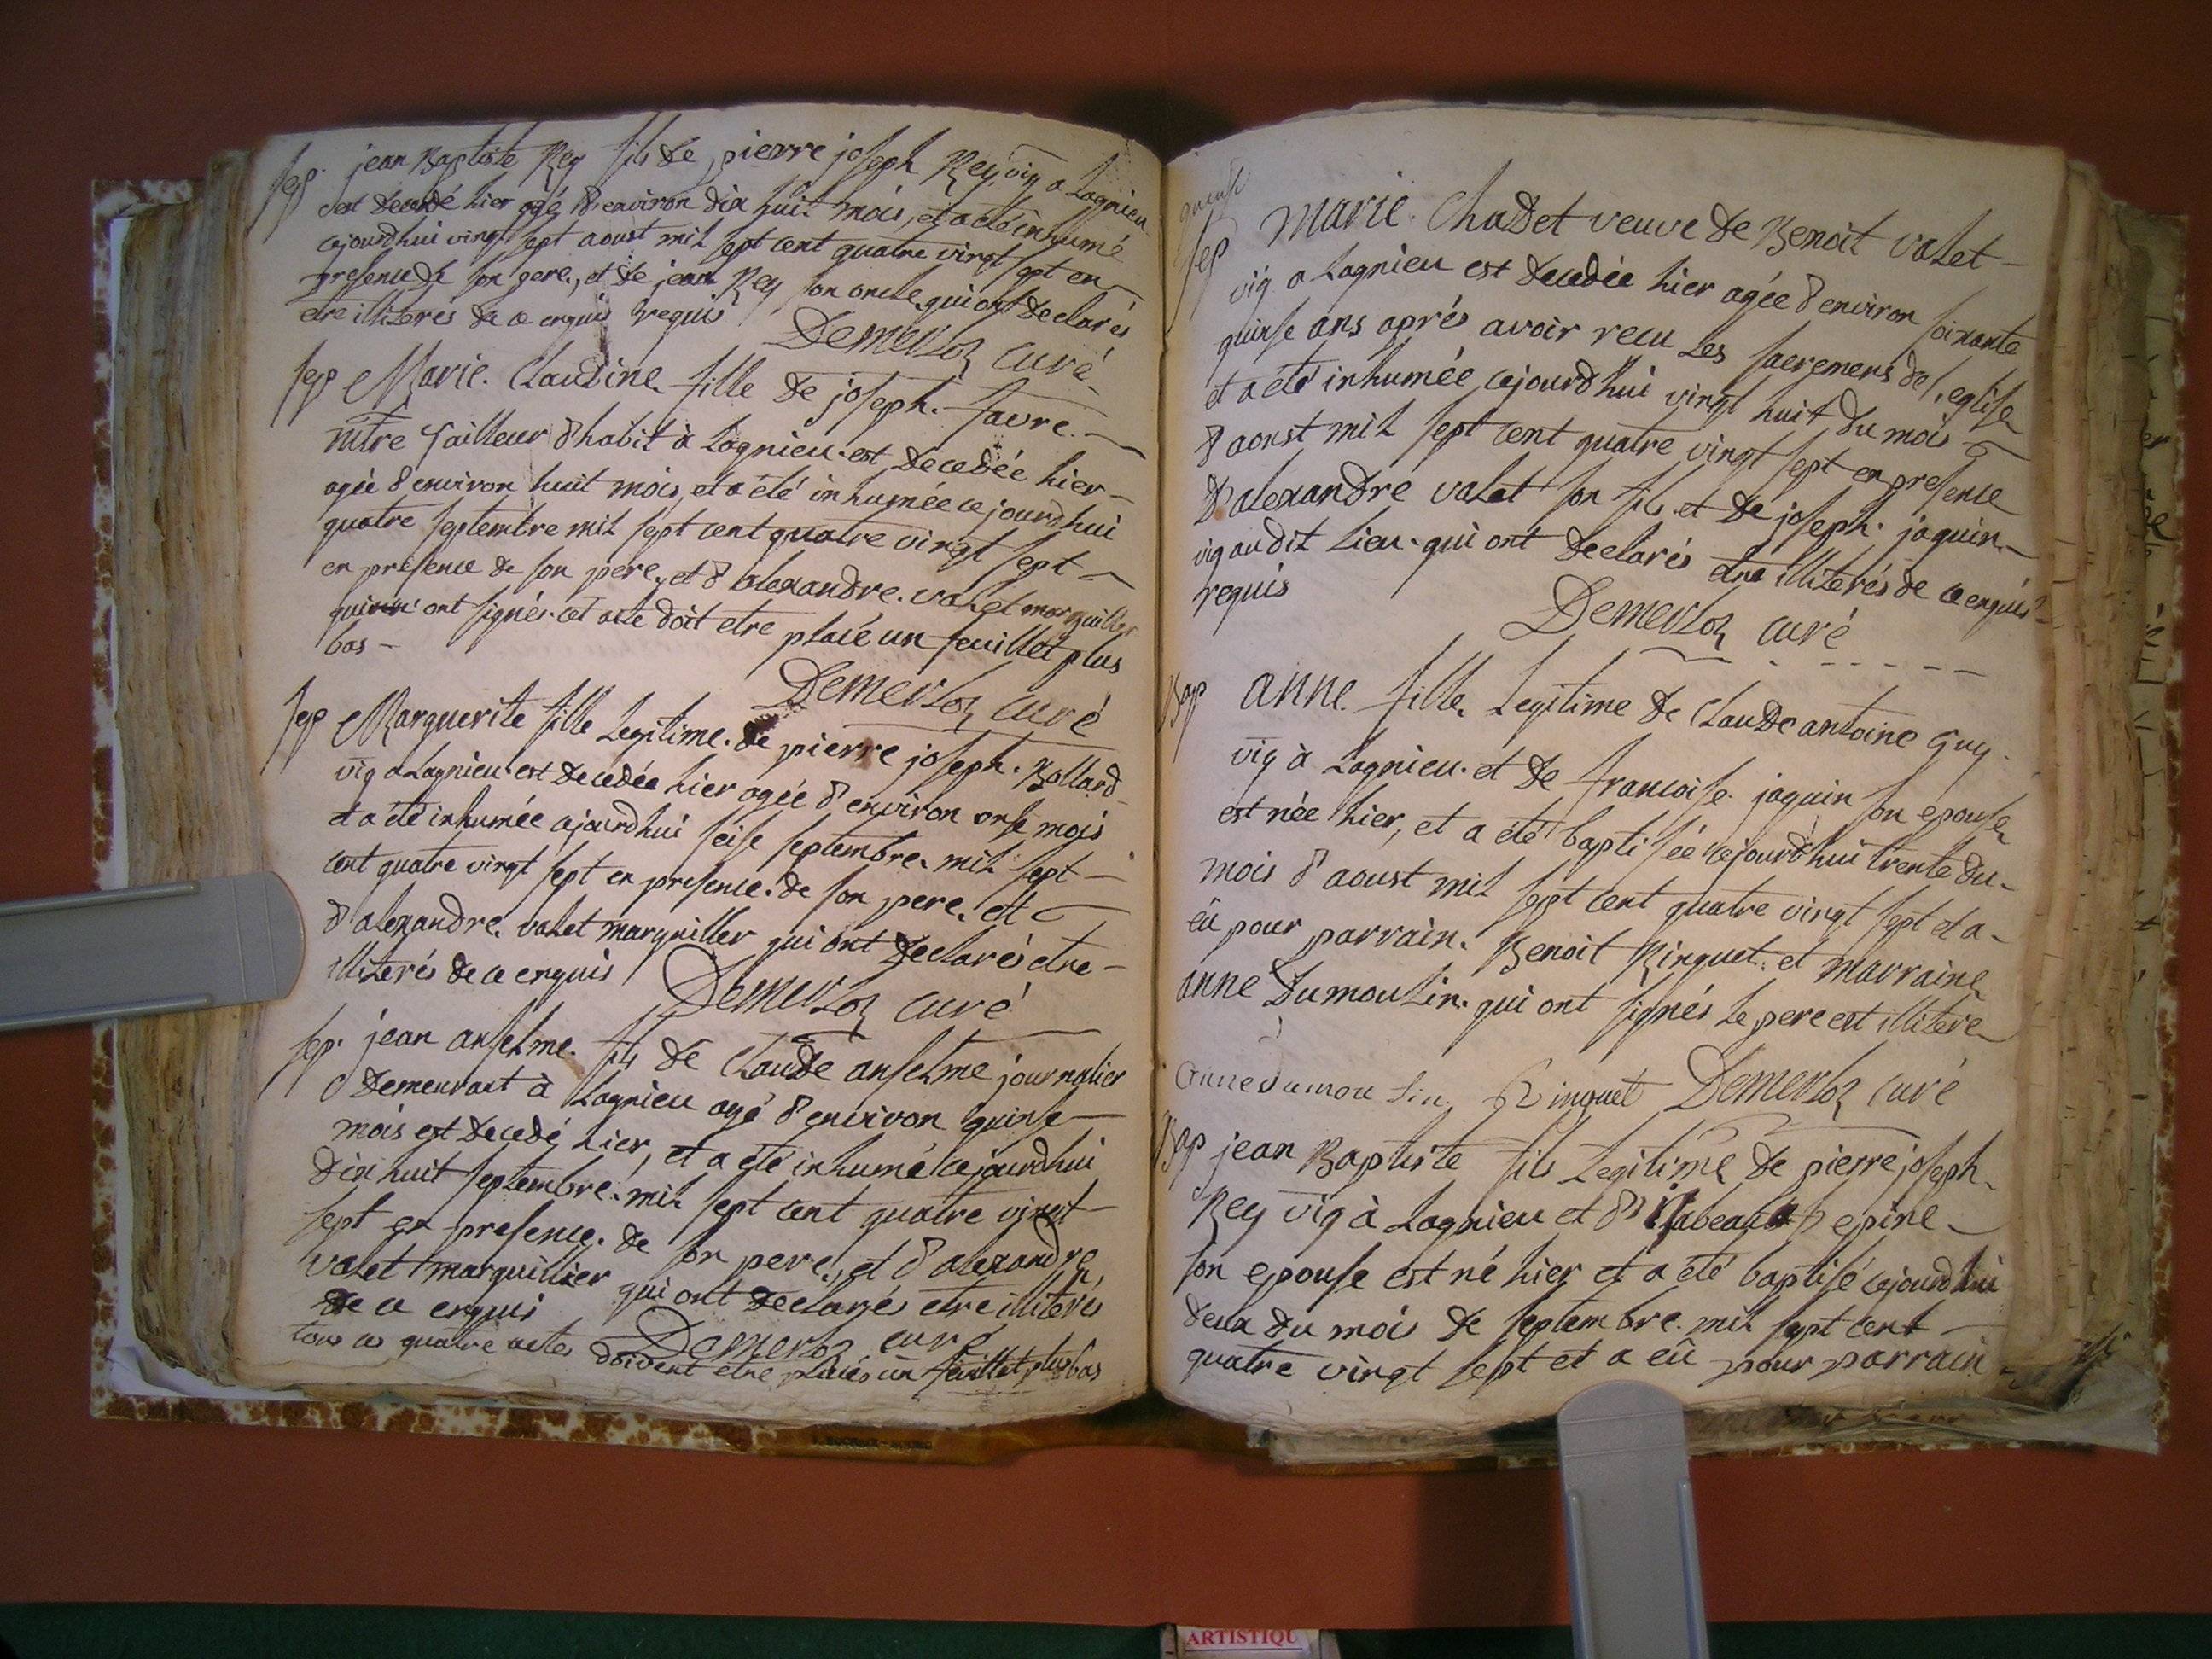 sep. jean Baptiste Rey fils de pierre joseph Rey vig a Lagnieu
est decedé hier agé d'environ dix huit mois, et a été inhumé
cejourdhui vingt sept aoust mil sept cent quatre vingt sept en
presence de son pere, et de jean Rey son oncle qui ont declarés
etre illiterés de ce enquis requis
Demerloz curé
sep Marie. Claudine fille de joseph. favre.
mtre Tailleur d'habit à Lagnieu. est decedée hier
agée d'environ huit mois, et a été inhumée cejourdhui
quatre septembre mil sept cent quatre vingt sept
en presence de son pere, et d'alexandre. valet marguiller
qui ont signés. cet acte doit etre placé un feuillet plus
bas
Demerloz curé
sep Marguerite fille Legitime. de pierre joseph. Bollard
vig a Lagnieu est decedée hier agée d'environ onse mois
et a été inhumée cejourdhui seise septembre. mil sept
cent quatre vingt sept en presence. de son pere. et
d'alexandre. valet marguiller qui ont declarés etre
illiterés de ce enquis
Demerloz curé
sep. jean anselme. fils de Claude anselme journalier
demeurant à Lagnieu agé d'environ quinse
mois est decedé hier, et a été inhumé cejourdhui
dix huit septembre. mil sept cent quatre vingt
sept en presence. de son pere, et d'alexandre
valet marguillier qui ont declarés etre illiterés
de ce enquis
Demerloz curé
tous ces quatre actes doivent etre placés un feuillet plus bas
sep Marie. Chadet veuve de Benoit valet
vig a Lagnieu est decedée hier agée d'environ soixante
quinse ans aprés avoir recu Les sacremens de l'eglise
et a été inhumée cejourdhui vingt huit du mois
d'aoust mil sept cent quatre vingt sept en presence
d'alexandre valet son fils. et de joseph. jaquin
vig audit Lieu. qui ont declarés etre illiterés de ce enquis
requis
Demerloz curé
Bap anne. fille Legitime de Claude antoine Guy
vig à Lagnieu. et de francoise. jaquin son epouse
est née hier, et a été baptisée cejourdhui trente du
mois d'aoust mil sept cent quatre vingt sept et a
eû pour parrain. Benoit Ringuet. et marraine
anne Dumoulin. qui ont signés Le pere est illiteré
anne dumoulin. Ringuet Demerloz curé
Bap jean Baptiste fils Legitime de pierre joseph
Rey vig à Lagnieu et d'isabeau epine
son epouse est né hier et a été baptisé cejourdhui
deux du mois de septembre. mil sept cent
quatre vingt sept et a eû pour parrain
ARTISTIQU